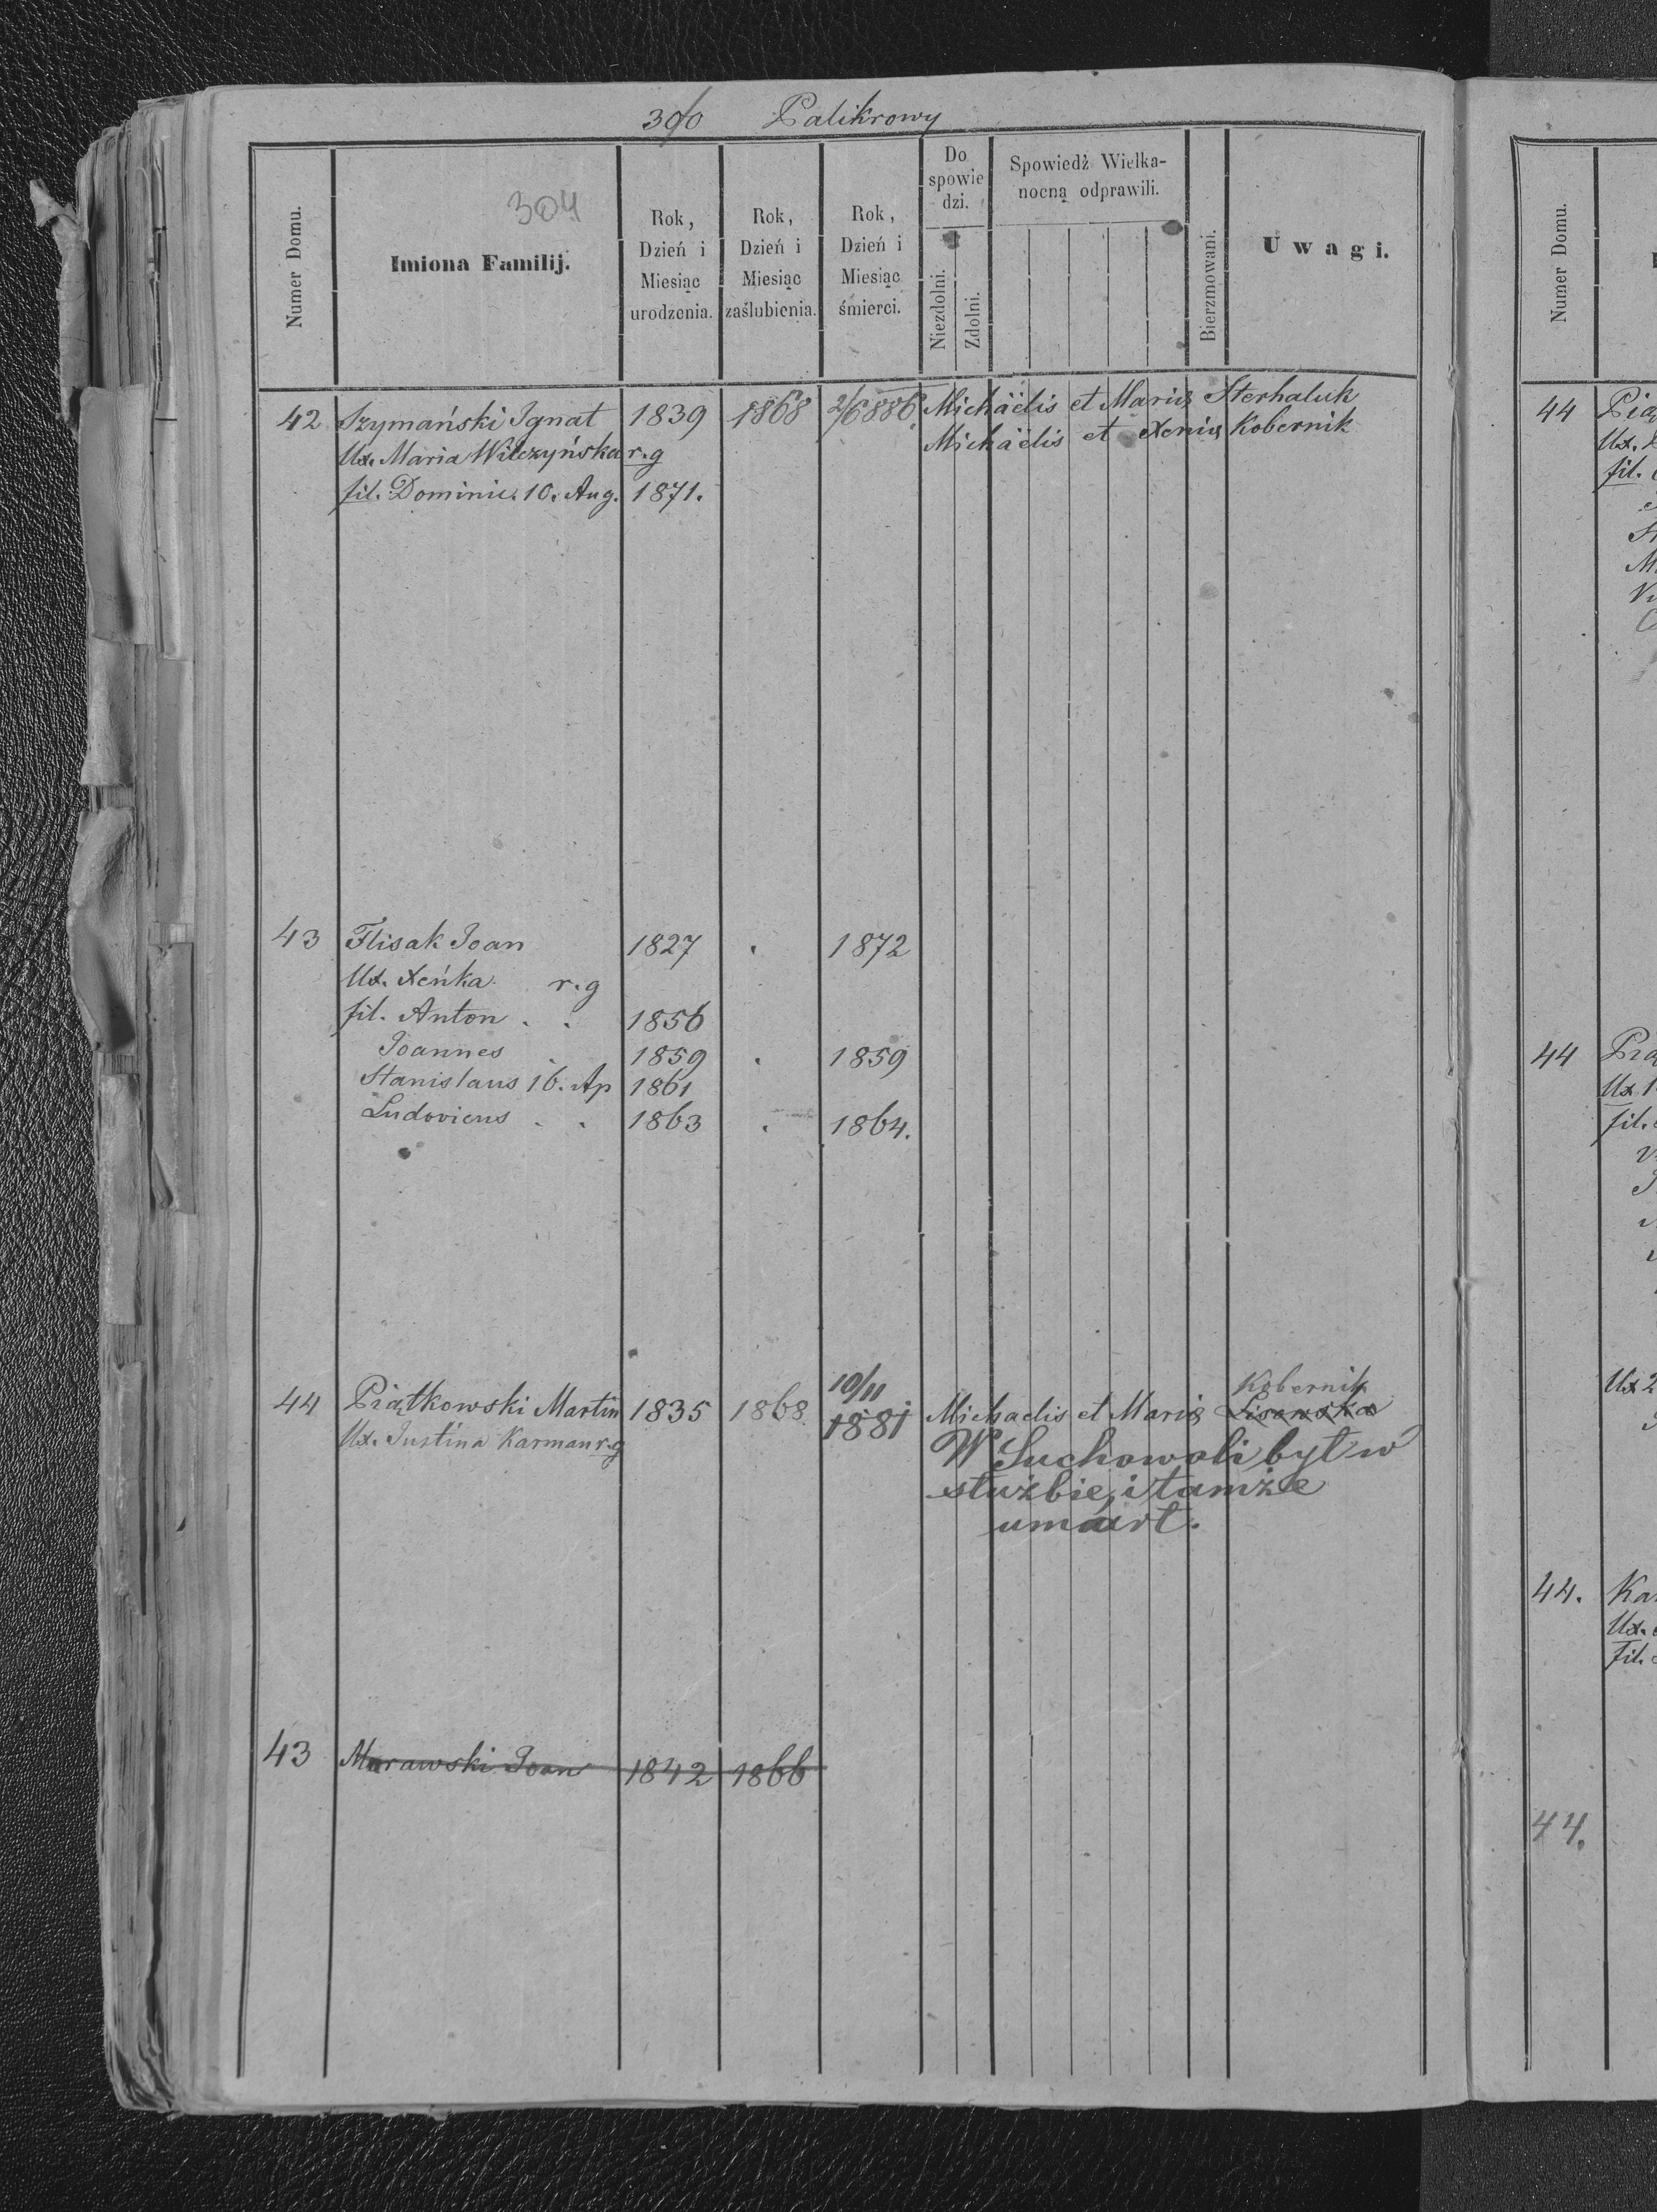 300 Palikrowy
304
Numer Domu.
Imiona Familij.
Rok, Dzień i Miesiąc urodzenia.
Rok, Dzień i Miesiąc zaślubienia.
Rok, Dzień i Miesiąc śmierci.
Do spowiedzi.
Niezdolni.
Zdolni.
Spowiedź Wielka-
nocną odprawili.
Bierzmowani.
Uwagi.
42 Szymański Ignat 1839 1868 2/6 886 Michaëlis et Maria Sterhaluk
Ux. Maria Wilczyńska r.g Michaëlis et Xenia Kobernik
fil. Dominic. 10. Aug. 1871.
43 Flisak Joan 1827 . 1872
Ux. Xeńka r.g
fil. Anton . . 1856
Joannes . 1859 . 1859
Stanislaus 16. Ap 1861
Ludovicus . . 1863 . 1864.
44 Piątkowski Martin 1835 1868 10/11 1881 Michaelis et Maria Lisowska Kobernik
Ux. Justina Karman r.g
W Suchowoli był w
służbie, i tamże
umarł.
43 Murawski Joan 1842 1866
Numer Domu.
44
Ux.
fil.
44
Ux 1
fil.
Ux 2
44. Ka
Ux.
fil.
44.